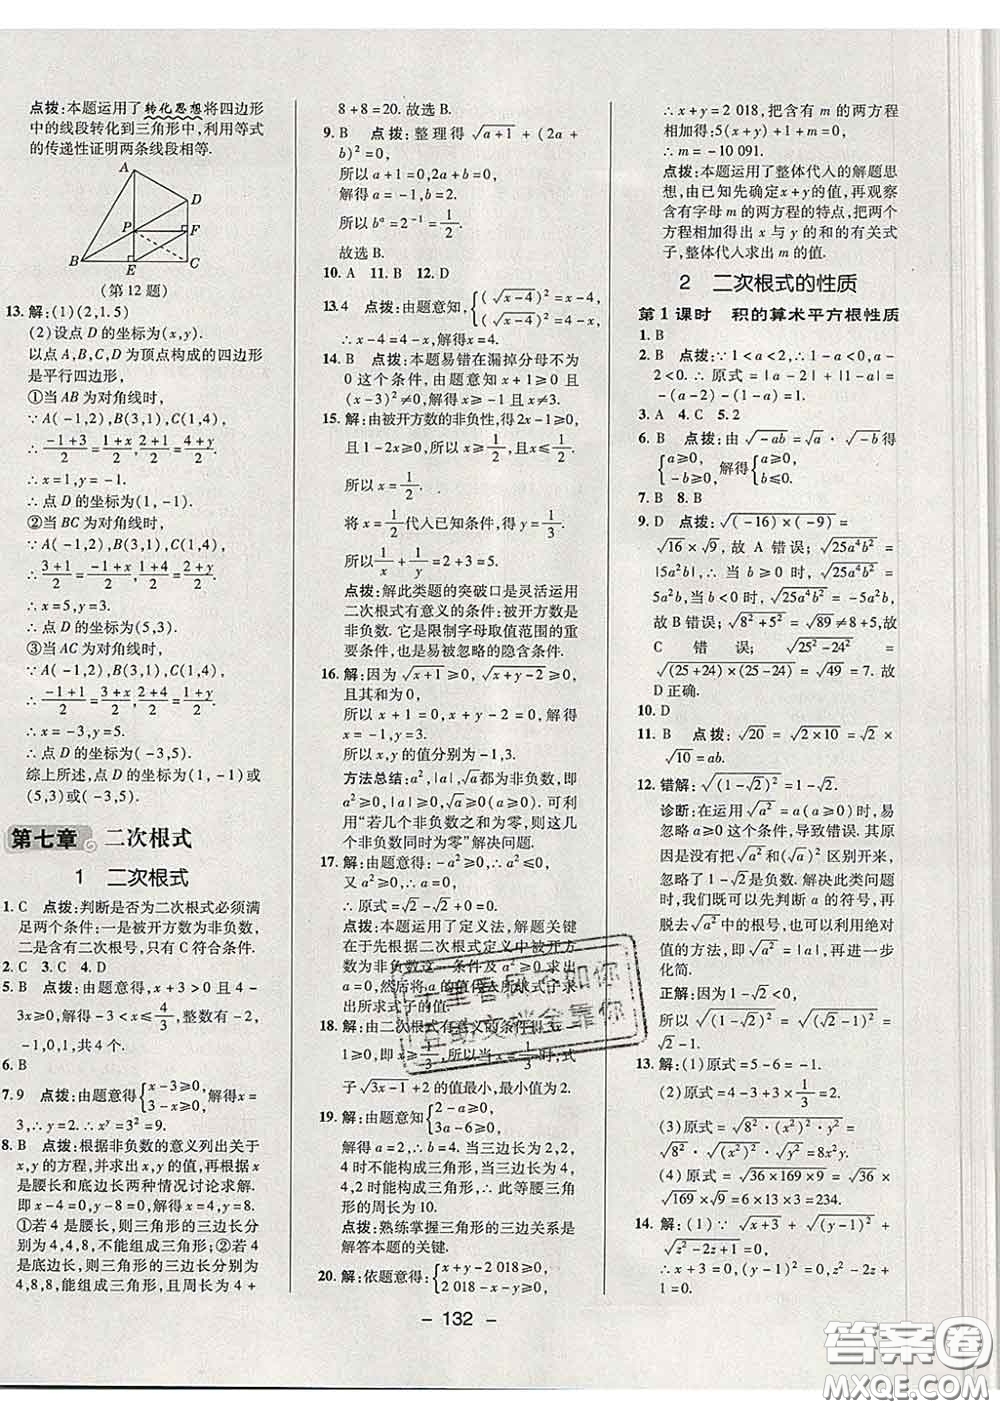 点拨:本题运用了转化思想将四边形
中的线段转化到三角形中,利用等式
的传递性证明两条线段相等.
A
D
P
F
B
E
C
(第12题)
13.解:(1)(2,1.5)
(2)设点D的坐标为(x,y).
以点A,B,C,D为顶点构成的四边形
是平行四边形,
①当AB为对角线时,
∵A(-1,2),B(3,1),C(1,4),
∴(-1+3)/2=(1+x)/2,(2+1)/2=(4+y)/2
∴x=1,y=-1.
∴点D的坐标为(1,-1).
②当BC为对角线时,
∵A(-1,2),B(3,1),C(1,4),
∴(3+1)/2=(-1+x)/2,(1+4)/2=(2+y)/2
∴x=5,y=3.
∴点D的坐标为(5,3).
③当AC为对角线时,
∵A(-1,2),B(3,1),C(1,4),
∴(-1+1)/2=(3+x)/2,(2+4)/2=(1+y)/2
∴x=-3,y=5.
∴点D的坐标为(-3,5).
综上所述,点D的坐标为(1,-1)或
(5,3)或(-3,5).
第七章 二次根式
1 二次根式
1.C 点拨:判断是否为二次根式必须满
足两个条件:一是被开方数为非负数,
二是含有二次根号,只有C符合条件.
2.C 3.C 4.D
5.B 点拨:由题意得,x+3>0且4-
3x≥0,解得-3<x≤4/3,整数有-2,
-1,0,1,共4个.
6.B
7.9 点拨:由题意得{x-3≥0, 3-x≥0.解得
x=3.∴y=2.∴x^y=3²=9.
8.B 点拨:根据非负数的意义列出关于
x,y的方程,并求出x,y的值,再根据x
是腰长和底边长两种情况讨论求解.
根据题意得
解得x=4,y=8.
①若4是腰长,则三角形的三边长分
别为4,4,8,不能组成三角形;②若4
是底边长,则三角形的三边长分别为
4,8,8,能组成三角形,且周长为4+
8+8=20.故选B.
9.B 点拨:整理得√(a+1)+(2a+
b)²=0,
所以a+1=0,2a+b=0,
解得a=-1,b=2.
所以bᵃ=2⁻¹=1/2.
故选B.
10.A 11.B 12.D
13.4 点拨:由题意知,{(√(x-4))²=x-4, (√(x-4))²=4-x,
∴x-4=4-x,∴x=4.
14.B 点拨:本题易错在漏掉分母不为
0这个条件,由题意知x+1≥0且
(x-3)²≠0,解得x≥-1且x≠3.
15.解:由被开方数的非负性,得2x-1≥0,
且1-2x≥0,所以x≥1/2,且x≤1/2.
所以x=1/2.
将x=1/2代入已知条件,得y=3.
所以1/x+y=2+3=5.
点拨:解此类题的突破口是灵活运用
二次根式有意义的条件:被开方数是
非负数.它是限制字母取值范围的重要
条件,也是易被忽略的隐含条件.
16.解:因为√(x+1)≥0,√(x+y-2)≥0,
且其和为0,
所以x+1=0,x+y-2=0,解得
x=-1,y=3.
所以,x,y的值分别为-1,3.
方法总结:a²,|a|,√a都为非负数,即
a²≥0,|a|≥0,√a≥0(a≥0).可利用
“若几个非负数之和为零,则这几个
非负数同时为零”解决问题.
17.解:由题意得:-a²≥0,∴a²≤0,
又a²≥0,∴a²=0,
∴原式=√4=2.
点拨:本题运用了定义法,解题关键
在于先根据二次根式定义中被开方
数为非负数这一条件及a²≥0求出
a=0,然后将a的值代入所求式子求
出所求式子的值.
18.解:由二次根式有意义的条件得3x-
1≥0,即x≥1/3,所以当x=1/3时,式
子√(3x-1)+2的值最小,最小值为2.
19.解:由题意知{2-a≥0, 3a-6≥0,
解得a=2,∴b=4.当三边长为2,2,
4时不能构成三角形,当三边长为4,
4,2时能构成三角形,∴此等腰三角形
的周长为10.
点拨:熟练掌握三角形的三边关系是
解答本题的关键.
20.解:依题意得:{x+y-2 018≥0, 2 018-x-y≥0,
∴x+y=2 018,把含有m的两方程
相加得:5(x+y)+1-m=0,
∴m=-10 091.
点拨:本题运用了整体代入的解题思
想,由已知先确定x+y的值,再观察
含有字母m的两方程的特点,把两个
方程相加得出x与y的和的有关式
子,整体代入求出m的值.
2 二次根式的性质
第1课时 积的算术平方根性质
1.B
2.B 点拨:∵1<a<2,∴1-a<0,a-
2<0.∴原式=|a-2|+|1-a|=
-(a-2)-(1-a)=1.
3.A 4.C 5.2
6.B 点拨:由√(-ab)=√a·√(-b)得
{a≥0, -b≥0,解得{a≥0, b≤0.
7.B 8.B
9.D 点拨:√((-16)×(-9))=
√16×√9,故A错误;√(25a⁴b²)=
|5a²b|,当b≥0时,√(25a⁴b²)=
5a²b,当b<0时,√(25a⁴b²)=-5a²b,
故B错误;√(8²+5²)=√89≠8+5,故
C错误;√(25²-24²)=
√((25+24)×(25-24))=√49=7.故
D正确.
10.D
11.B 点拨:√20=√(2×10)=√2×
√10=ab.
12.错解:√((1-√2)²)=1-√2.
诊断:在运用√a²=a(a≥0)时,易
忽略a≥0这个条件,导致错误.其原
因是没有将√a²与(√a)²区别开来,
忽略了1-√2是负数.解决此类问题
时,我们既可以先判断a的符号,再
脱去√a²中的根号,也可以利用绝对
值的方法,即√a²=|a|,再进一步
化简.
正解:因为1-√2<0,
所以√((1-√2)²)=-(1-√2)=√2-1.
13.解:(1)原式=5-6=-1.
(2)原式=4-3+3×1/3=2.
(3)原式=√8²·√(x²)²·√y²=
√8²·√(x²)²·√y²=8x²y.
(4)原式=√(36×169×9)=√36×
√169×√9=6×13×3=234.
14.解:(1)∵√(x+3)+√(y-1)²+
√(z²-2z+1)=0,
∴x+3=0,y-1=0,z-1=0.
- 132 -
千里春秋不如你
互助文档全靠你
答案圈
MXQE.COM